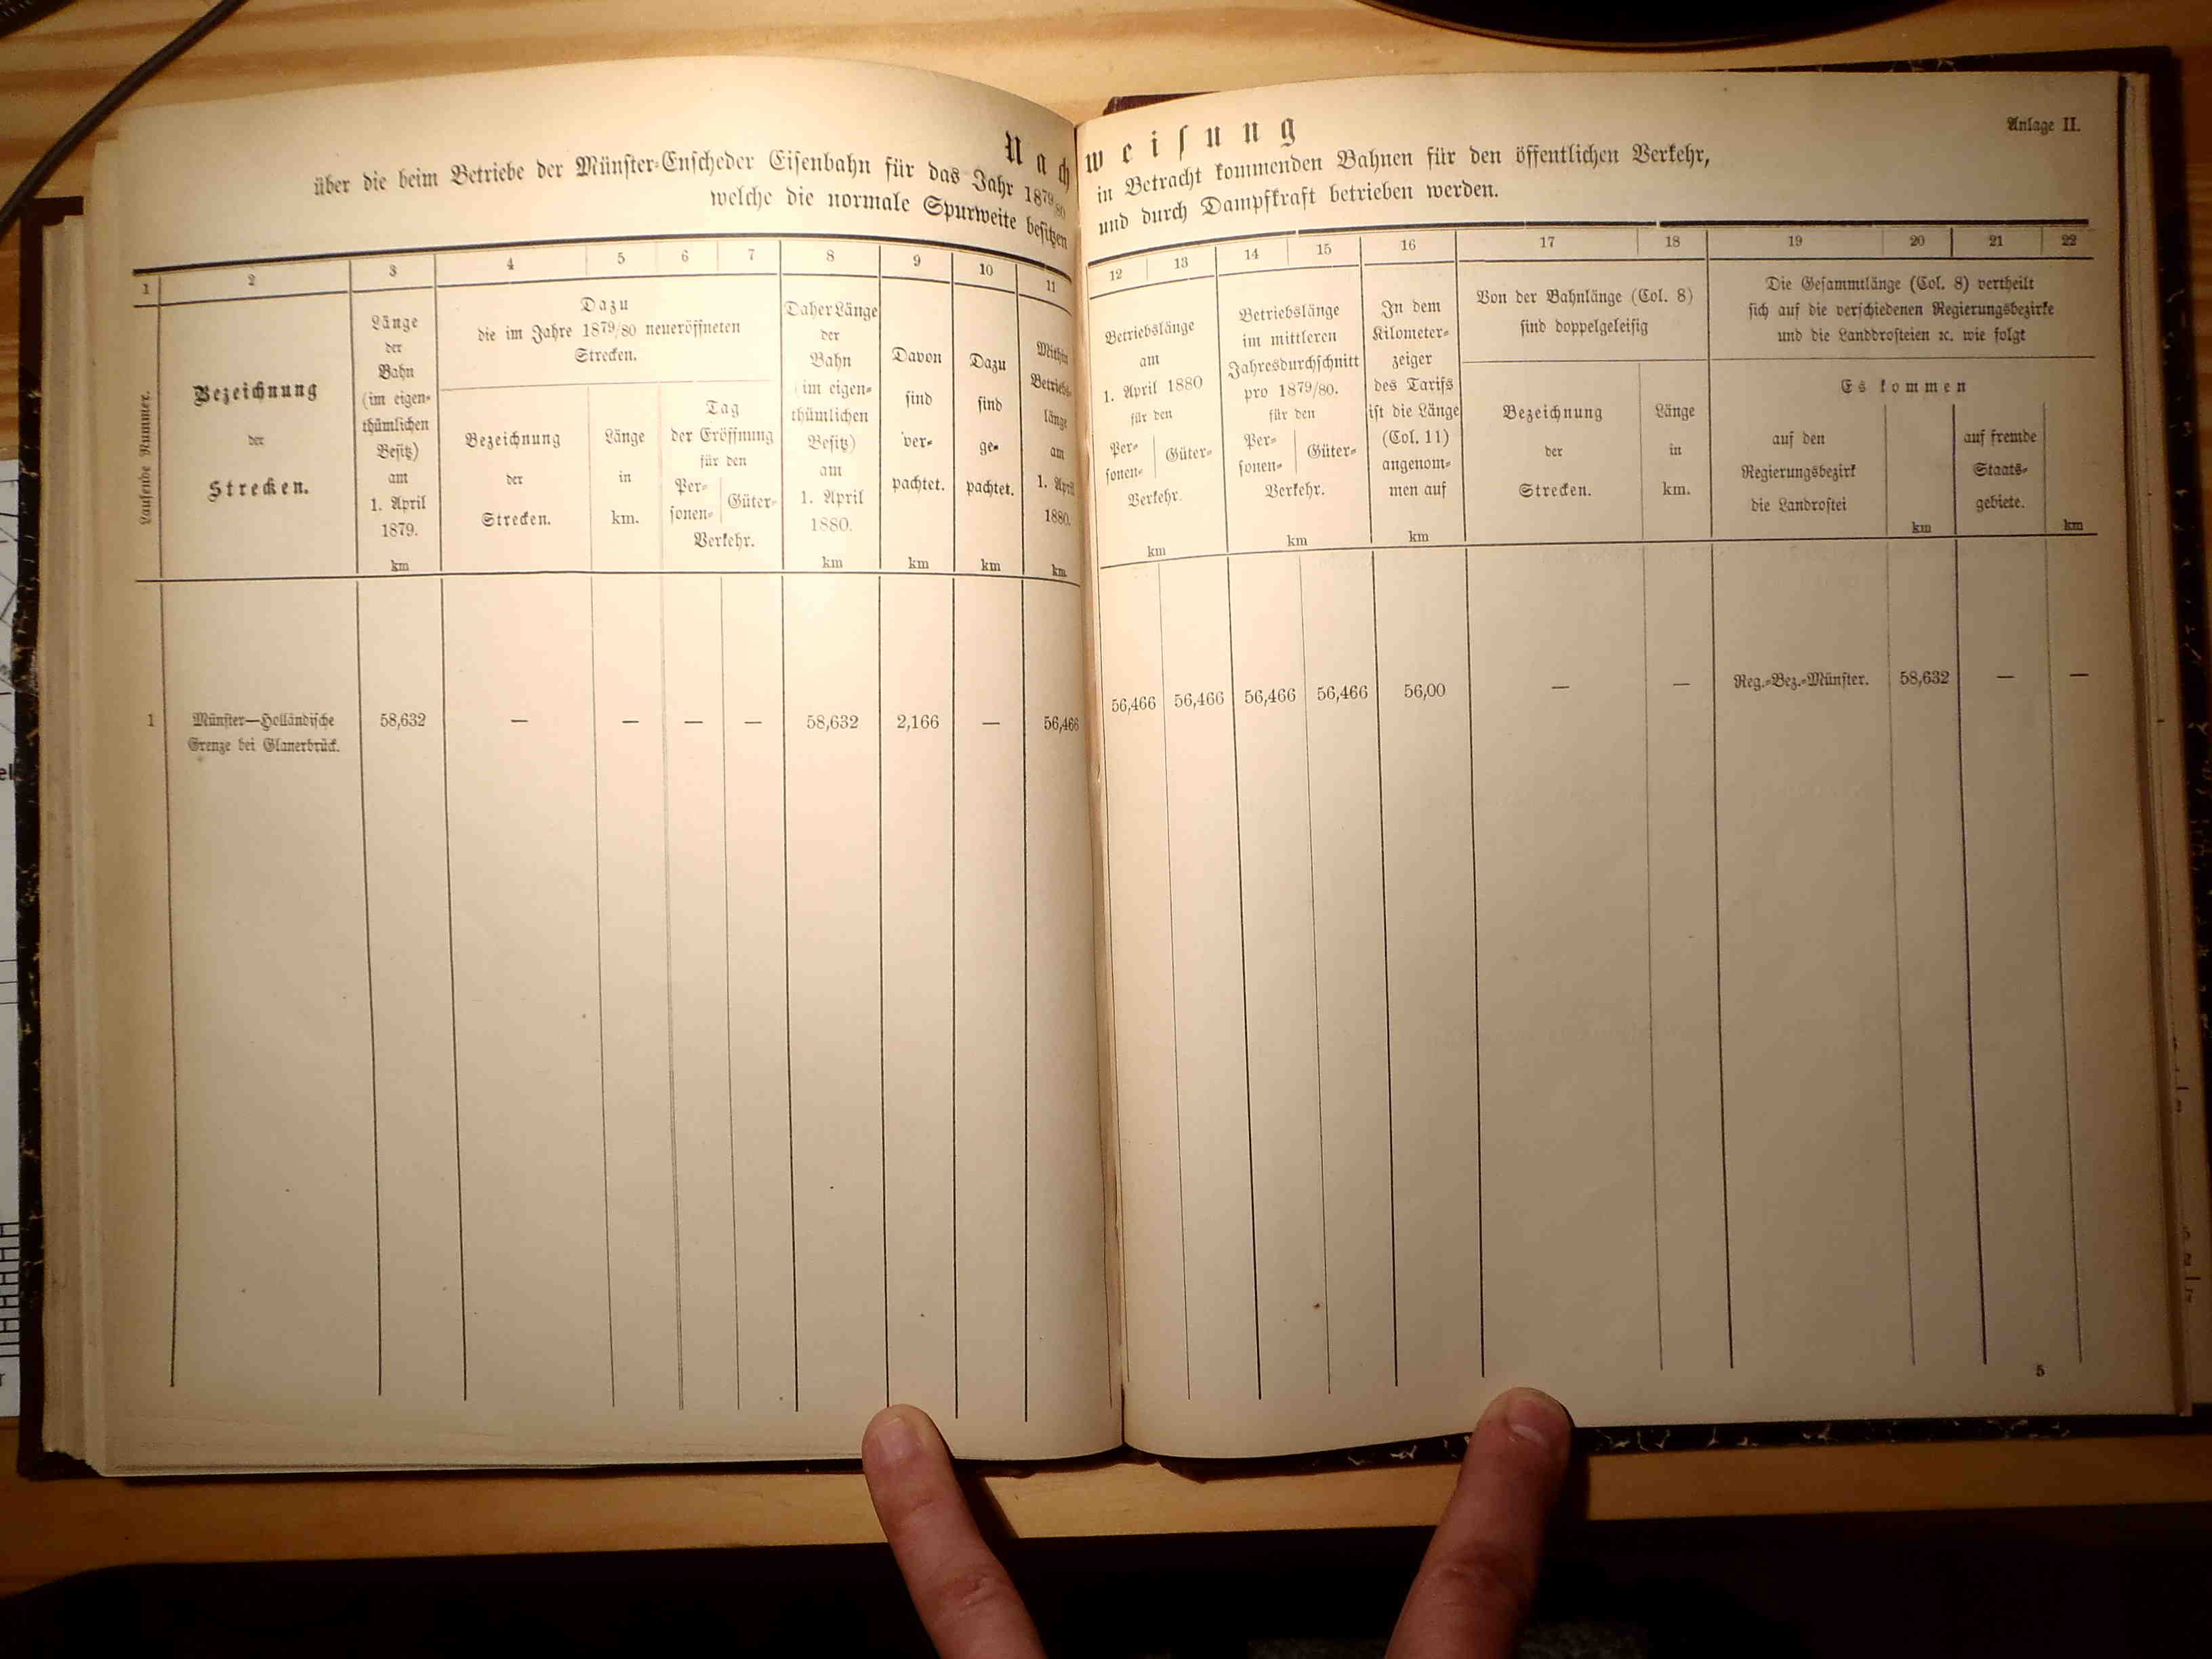 Anlage II.
Nachweisung
über die beim Betriebe der Münster-Enscheder Eisenbahn für das Jahr 1879/80 in Betracht kommenden Bahnen für den öffentlichen Verkehr,
welche die normale Spurweite besitzen und durch Dampfkraft betrieben werden.
1 2 3 4 5 6 7 8 9 10 11 12 13 14 15 16 17 18 19 20 21 22
Laufende Nummer.
Bezeichnung
der
Strecken.
Länge
der
Bahn
(im eigen-
thümlichen
Besitz)
am
1. April
1879.
km
Dazu
die im Jahre 1879/80 neueröffneten
Strecken.
Bezeichnung
der
Strecken.
Länge
in
km.
Tag
der Eröffnung
für den
Per-
sonen-
Güter-
Verkehr.
Daher Länge
der
Bahn
(im eigen-
thümlichen
Besitz)
am
1. April
1880.
km
Davon
sind
ver-
pachtet.
km
Dazu
sind
ge-
pachtet.
km
Mithin
Betriebs-
länge
am
1. April
1880.
km
Betriebslänge
am
1. April 1880
für den
Per-
sonen-
Güter-
Verkehr.
km
Betriebslänge
im mittleren
Jahresdurchschnitt
pro 1879/80.
für den
Per-
sonen-
Güter-
Verkehr.
km
In dem
Kilometer-
zeiger
des Tarifs
ist die Länge
(Col. 11)
angenom-
men auf
km
Von der Bahnlänge (Col. 8)
sind doppelgeleisig
Bezeichnung
der
Strecken.
Länge
in
km.
Die Gesammtlänge (Col. 8) vertheilt
sich auf die verschiedenen Regierungsbezirke
und die Landdrosteien ꝛc. wie folgt
Es kommen
auf den
Regierungsbezirk
die Landrostei
km
auf fremde
Staats-
gebiete.
km
1 Münster—Holländische 58,632 — — — — 58,632 2,166 — 56,466 56,466 56,466 56,466 56,466 56,00 — — Reg.-Bez.-Münster. 58,632 — —
Grenze bei Glanerbrück.
5